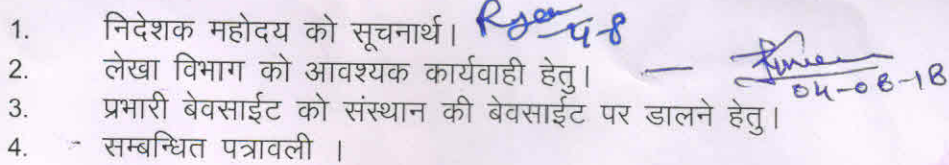 1. निदेशक महोदय को सूचनार्थ। 4-8
2. लेखा विभाग को आवश्यक कार्यवाही हेतु। — 04-08-18
3. प्रभारी बेवसाईट को संस्थान की बेवसाईट पर डालने हेतु।
4. सम्बन्धित पत्रावली ।